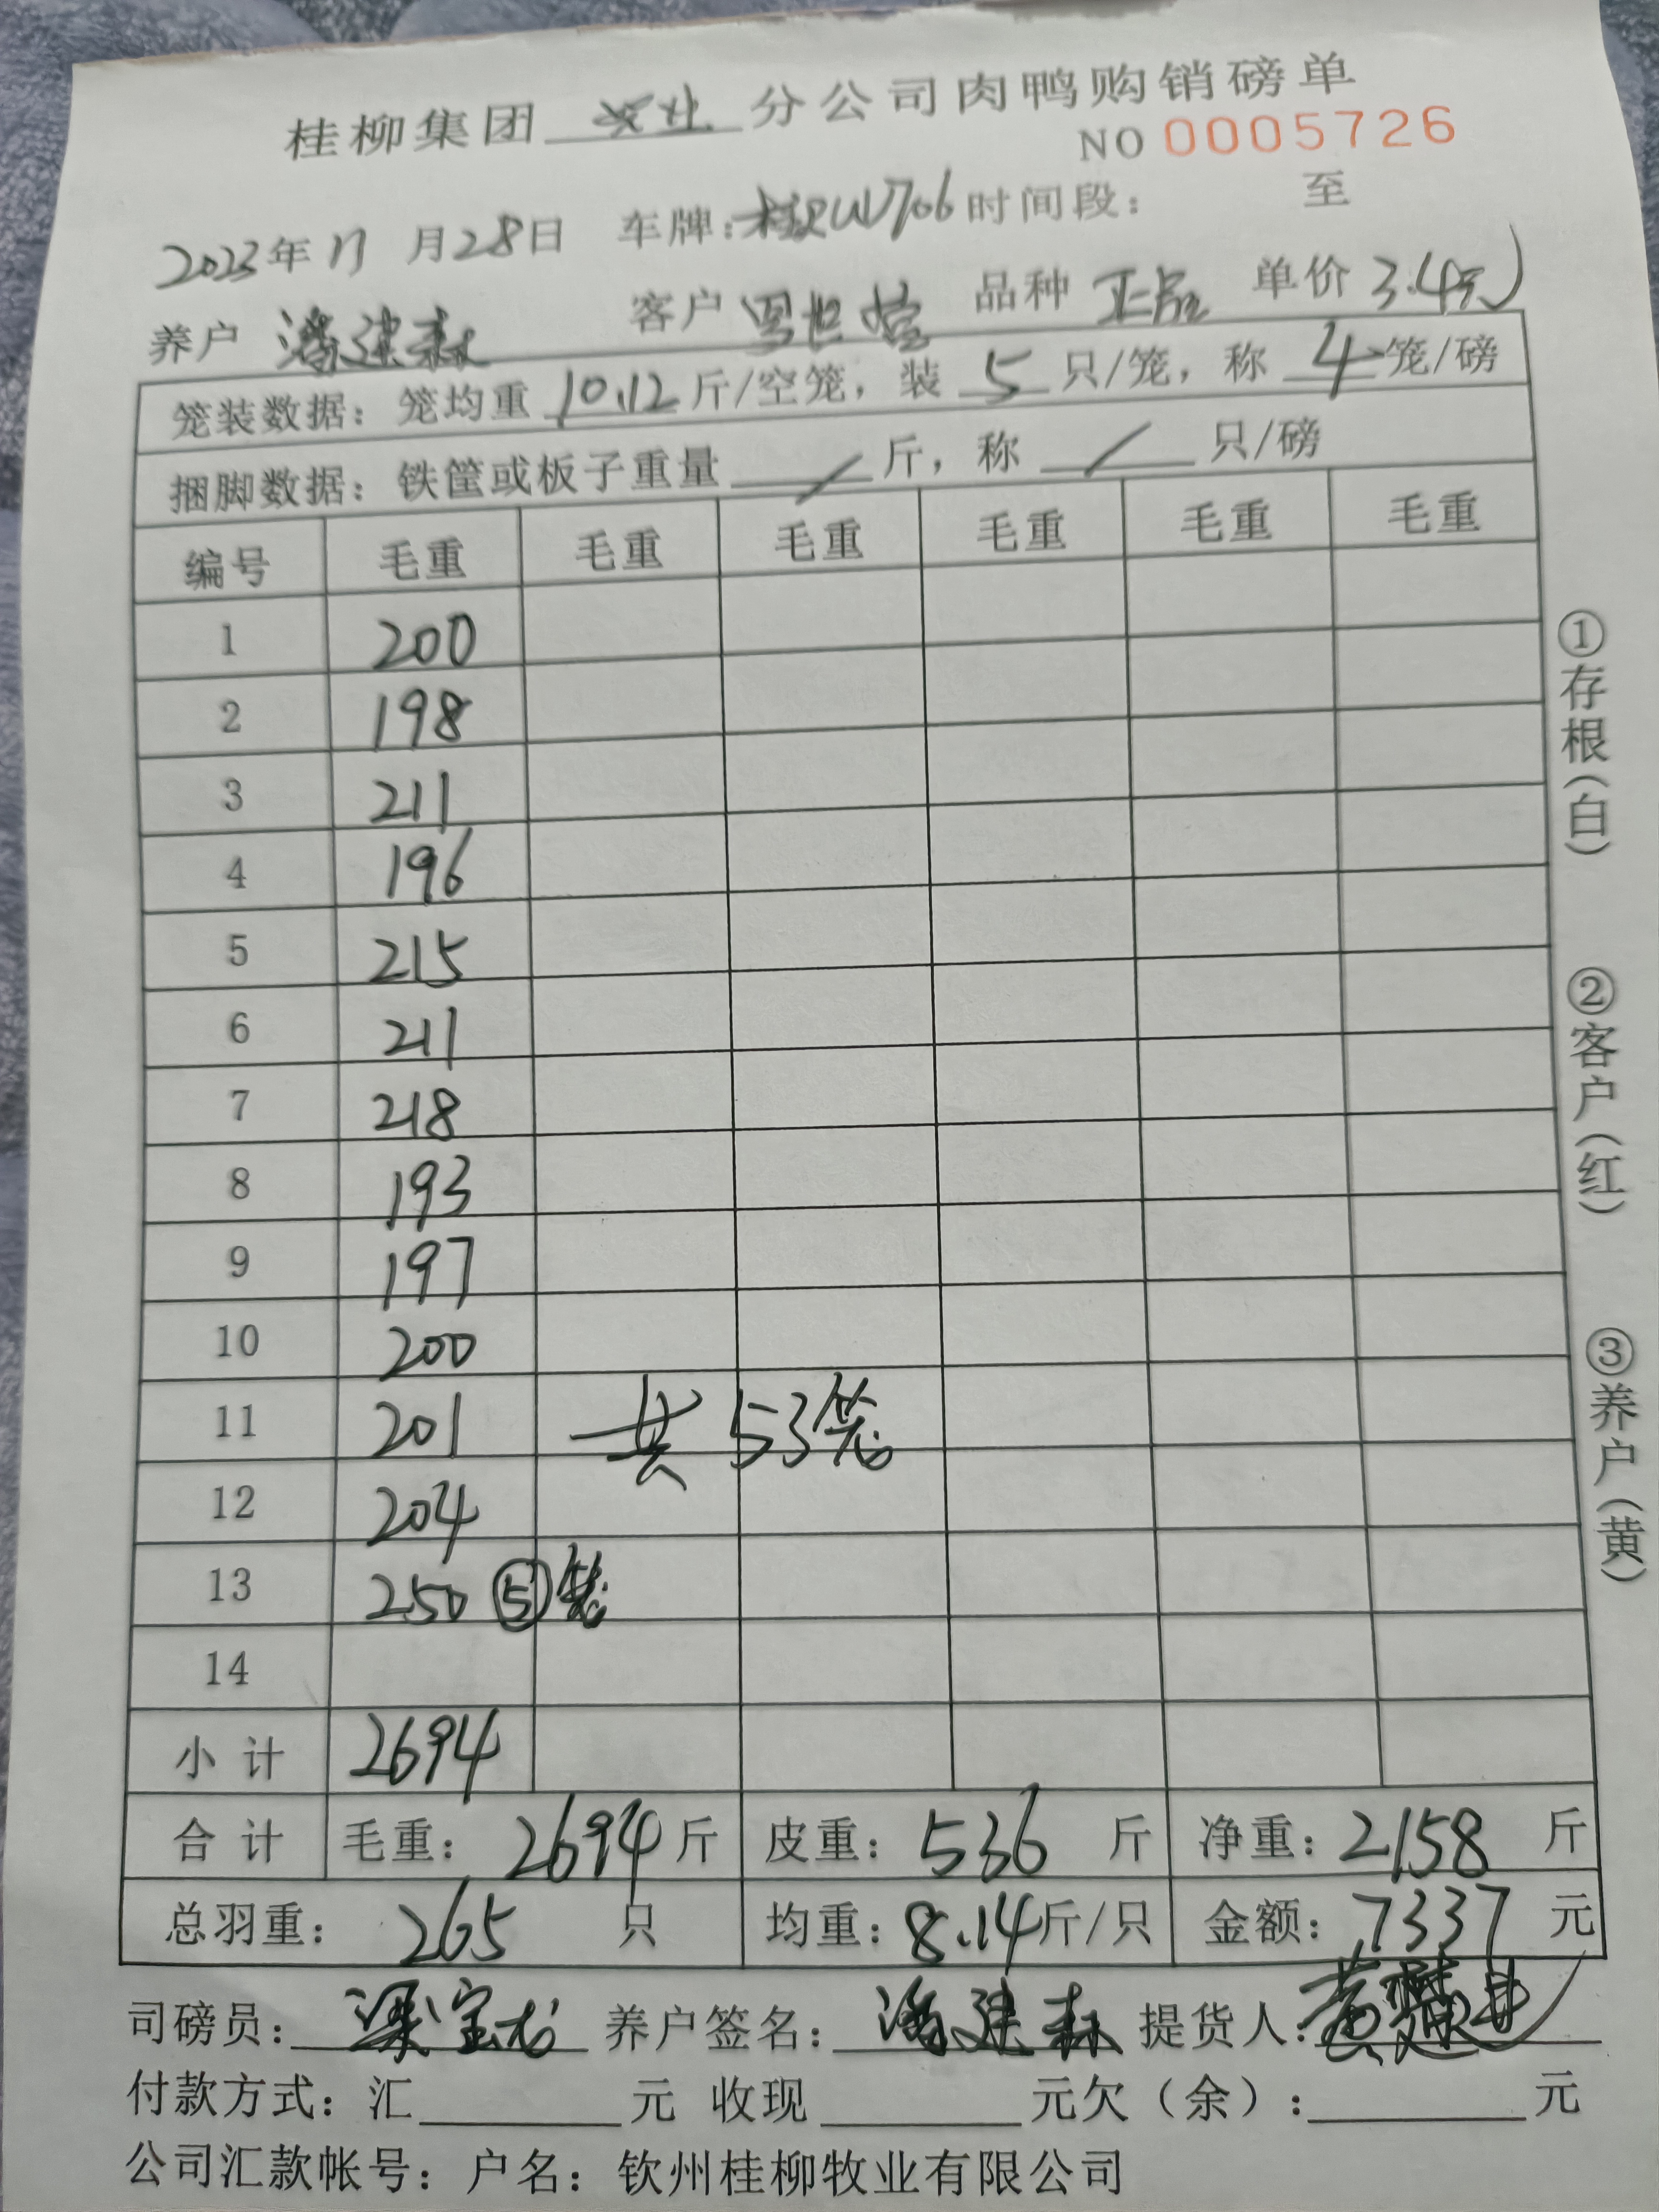 桂柳集团 牧业 分公司肉鸭购销磅单
NO 0005726
2023年11月28日 车牌: W706 时间段: 至
养户 潘建森 客户 品种 正品 单价 3.4元
笼装数据: 笼均重 10.12 斤/空笼, 装 5 只/笼, 称 4 笼/磅
捆脚数据: 铁筐或板子重量 / 斤, 称 / 只/磅
编号 毛重 毛重 毛重 毛重 毛重 毛重
1 200
2 198
3 211
4 196
5 215
6 211
7 218
8 193
9 197
10 200
11 201 共 53笼
12 204
13 250 ⑤笼
14
小 计 2694
合 计 毛重: 2694 斤 皮重: 536 斤 净重: 2158 斤
总羽重: 265 只 均重: 8.14 斤/只 金额: 7337 元
司磅员: 梁宝龙 养户签名: 潘建森 提货人:
付款方式: 汇 元 收现 元欠(余): 元
公司汇款帐号: 户名: 钦州桂柳牧业有限公司
①存根(白)
②客户(红)
③养户(黄)